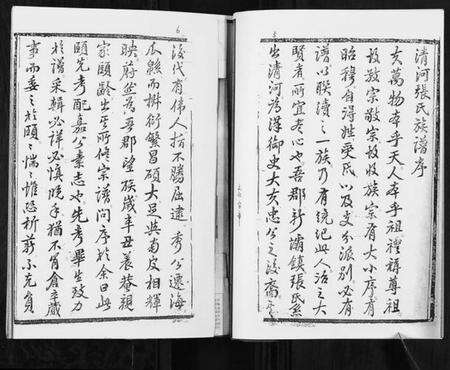 清河張氏族譜序
夫萬物本乎天人本乎祖禮稱尊祖
故敬宗敬宗故收族宗有大小序有
昭穆自得姓受氏以及支分派別必有
譜以聯濟之一族乃有統紀此人治之大
賢者所宜本心也吾郡新壩鎮張氏系
出清河為漢御史大夫忠公之後裔
後代有偉人指不勝屈遠秀公遷海
瓜綿而椒衍繁昌碩大足與南皮相輝
映蔚然為吾郡望族歲辛丑晨菴親
家頤齡出其所修宗譜問序於余曰此
頤先考配嘉公素志也先考畢生致力
於譜采輯必詳必慎晚年猶不肯倉卒蕆
事而委之於頤惴惴惟恐析薪不克負